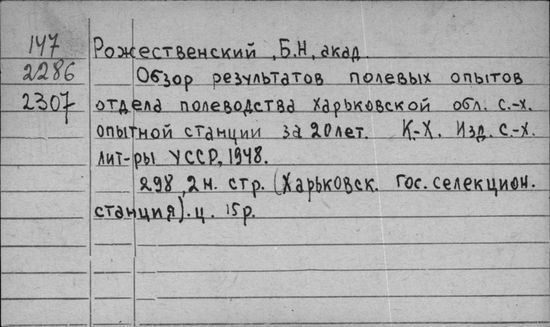 147 Рожественский, Б.Н, акад.
2286 Обзор результатов полевых опытов
2307 отдела полеводства Харьковской обл. с.-х.
опытной станции за 20 лет. К.-Х. Изд. с.-х.
лит-ры УССР, 1948.
298, 2 н. стр. (Харьковск. Гос. селекцион.
станция). ц. 15р.